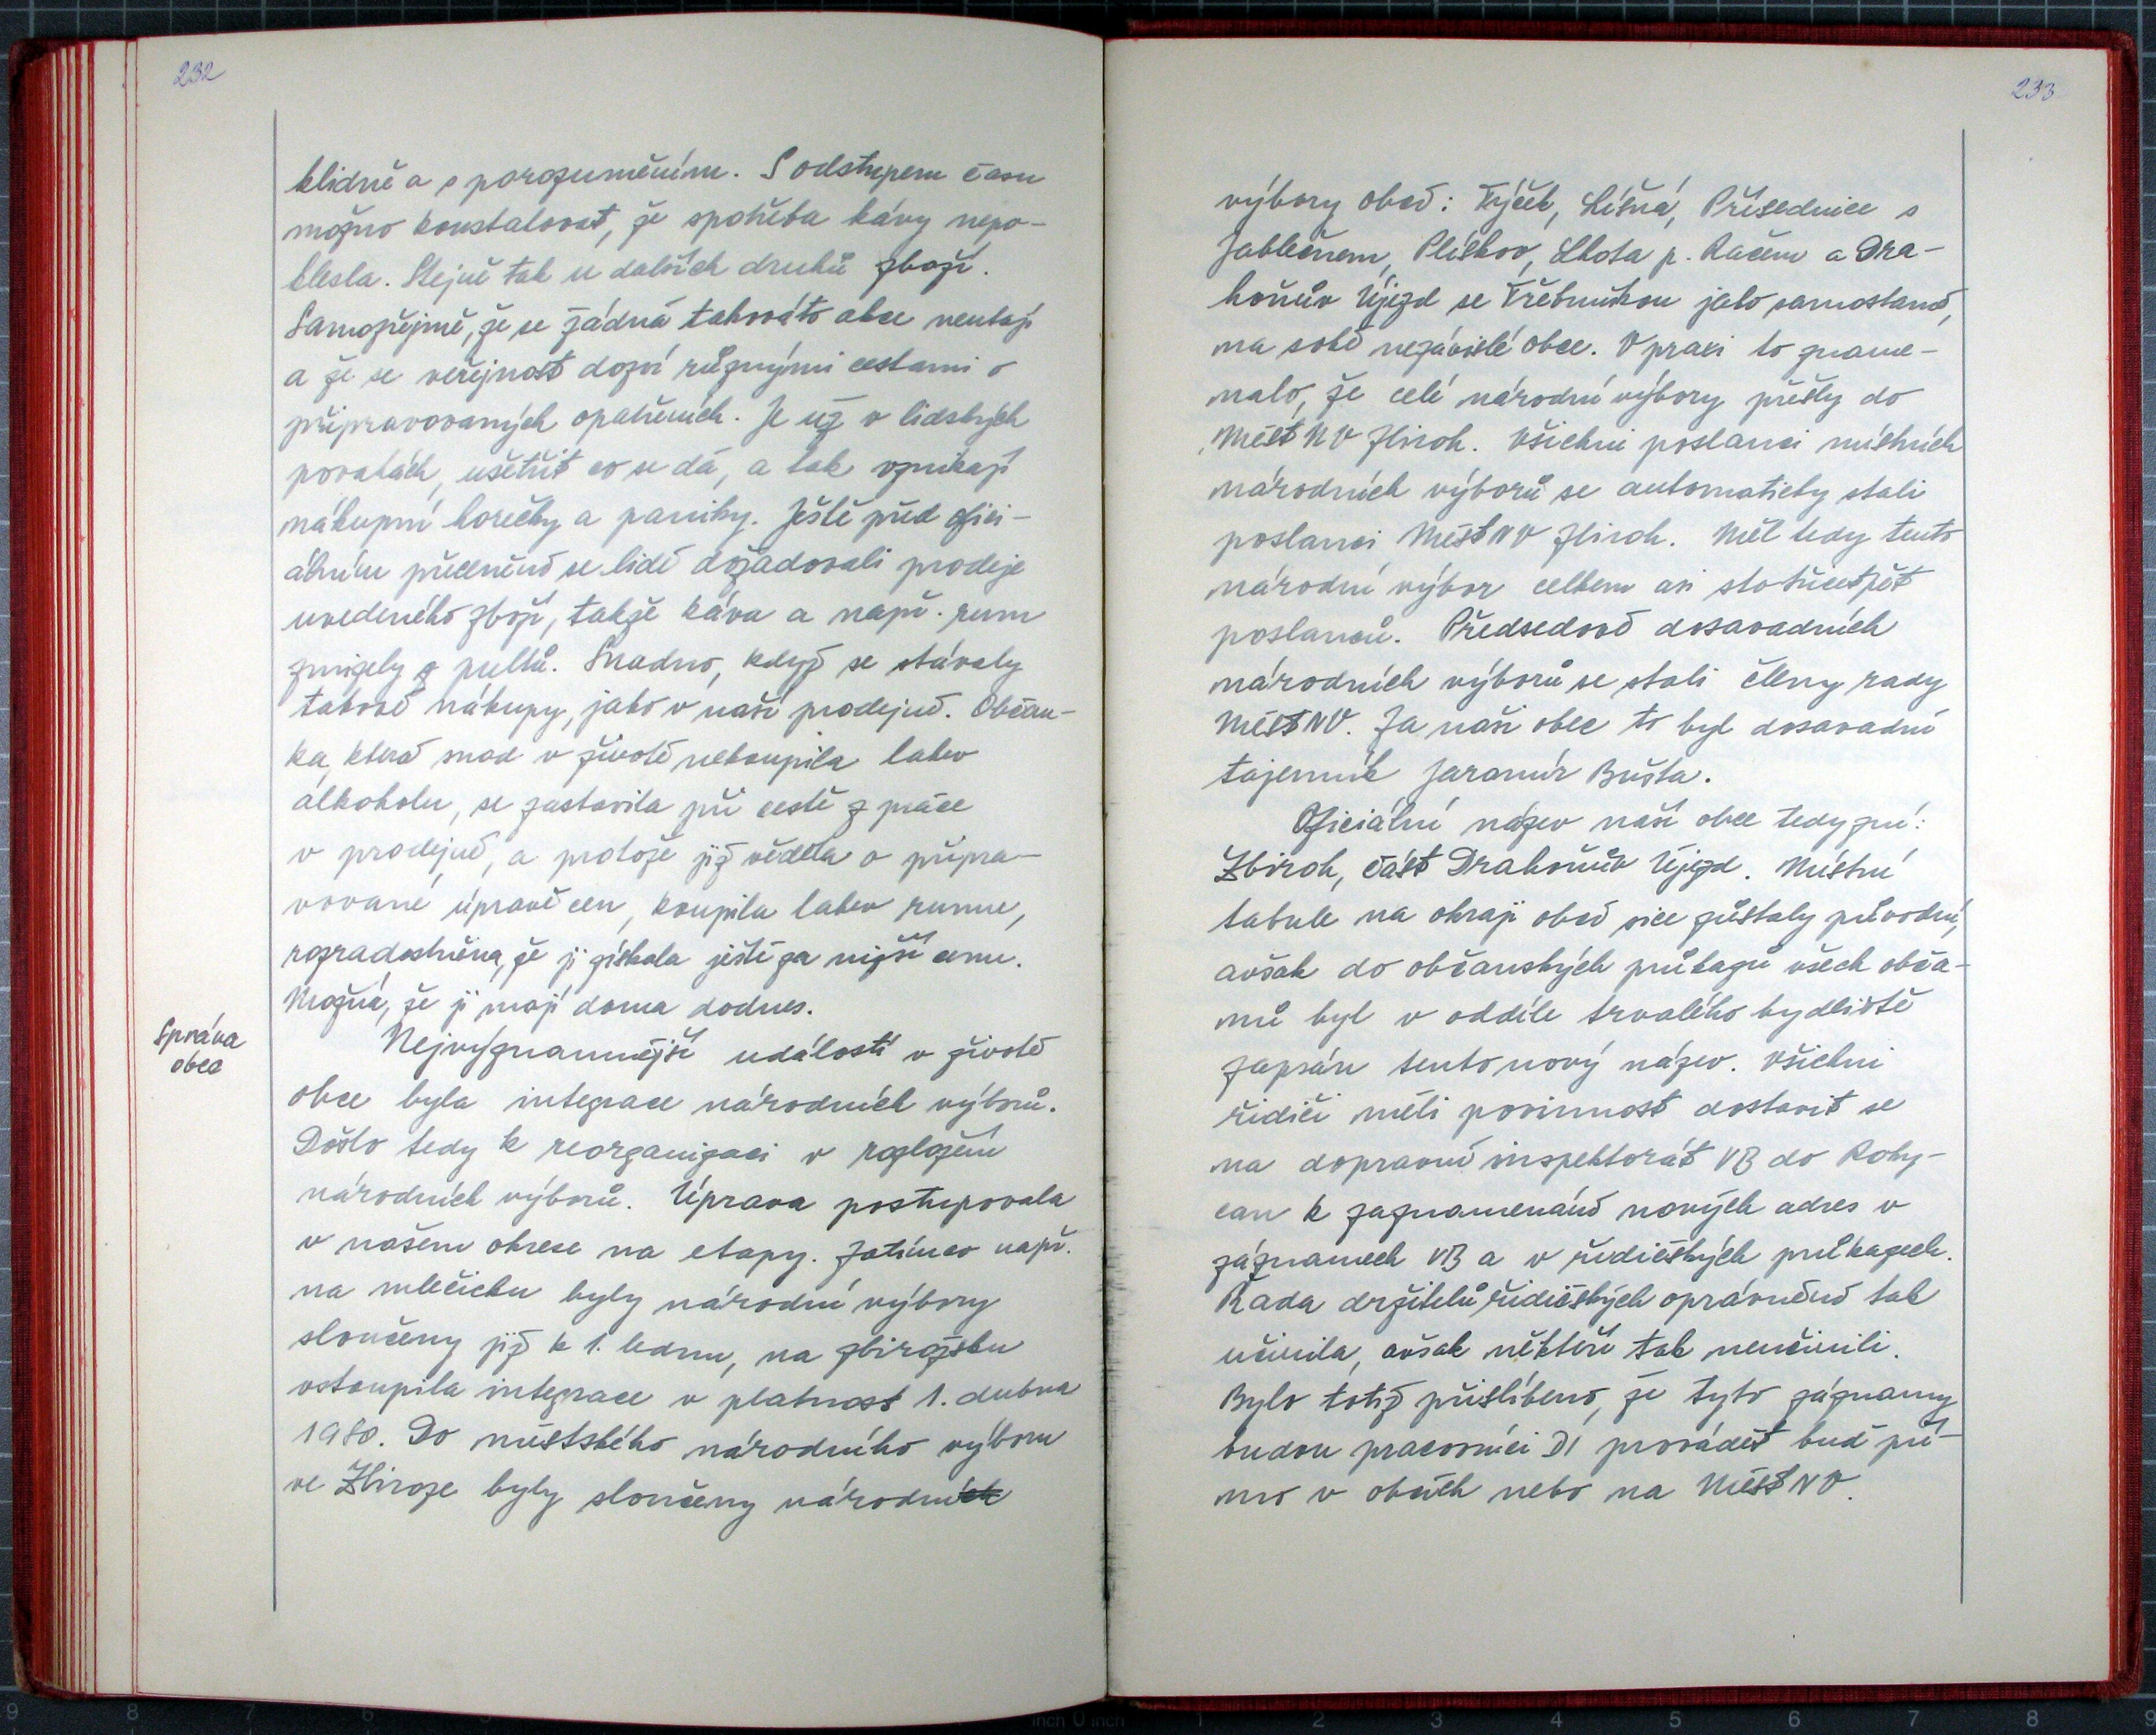 232
klidně a s porozuměním. S odstupem času
možno konstatovat, že spotřeba kávy nepo-
klesla. Stejně tak u dalších druhů zboží.
Samozřejmě, že se žádná takováto akce neutají
a že se veřejnost dozví různými cestami o
připravovaných opatřeních. Je už v lidských
povahách, ušetřit co se dá, a tak vznikají
nákupní horečky a paniky. Ještě před ofici-
álním přeceněním se lidé dožadovali prodeje
uvedeného zboží, takže káva a např. rum
zmizely z pultů. Snadno, když se stávaly
takové nákupy, jako v naší prodejně. Občan-
ka, která snad v životě nekoupila lahev
alkoholu, se zastavila při cestě z práce
v prodejně, a protože již věděla o připra-
vované úpravě cen, koupila lahev rumu,
rozradostněna, že ji získala ještě za nižší cenu.
Možná, že ji mají doma dodnes.
Správa
obce
Nejvýznamnější událostí v životě
obce byla integrace národních výborů.
Došlo tedy k reorganizaci v rozložení
národních výborů. Úprava postupovala
v našem okrese na etapy. Zatímco např.
na mlečicku byly národní výbory
sloučeny již k 1. lednu, na zbirožsku
vstoupila integrace v platnost 1. dubna
1980. Do městského národního výboru
ve Zbiroze byly sloučeny národních
233
výbory obcí: Týček, Líšná, Přísednice s
Jablečnem, Plískov, Lhota p. Račem a Dra-
hoňův Újezd se Třebnuškou jako samostané,
na sobě nezávislé obce. V praxi to zname-
nalo, že celé národní výbory přešly do
MěstNV Zbiroh. Všichni poslanci místních
národních výborů se automaticky stali
poslanci MěstNV Zbiroh. Měl tedy tento
národní výbor celkem asi stotřicetpět
poslanců. Předsedové dosavadních
národních výborů se stali členy rady
MěstNV. Za naši obec to byl dosavadní
tajemník Jaromír Bušta.
Oficiální název naší obce tedy zní:
Zbiroh, část Drahoňův Újezd. Místní
tabule na okraji obcí sice zůstaly původní,
avšak do občanských průkazů všech obča-
nů byl v oddíle trvalého bydliště
zapsán tento nový název. Všichni
řidiči měli povinnost dostavit se
na dopravní inspektorát VB do Roky-
can k zaznamenání nových adres v
záznamech VB a v řidičských průkazech.
Řada držitelů řidičských oprávnění tak
učinila, avšak někteří tak neučinili.
Bylo totiž přislíbeno, že tyto záznamy
budou pracovníci DI provádět buď pří-
mo v obcích nebo na MěstNV.